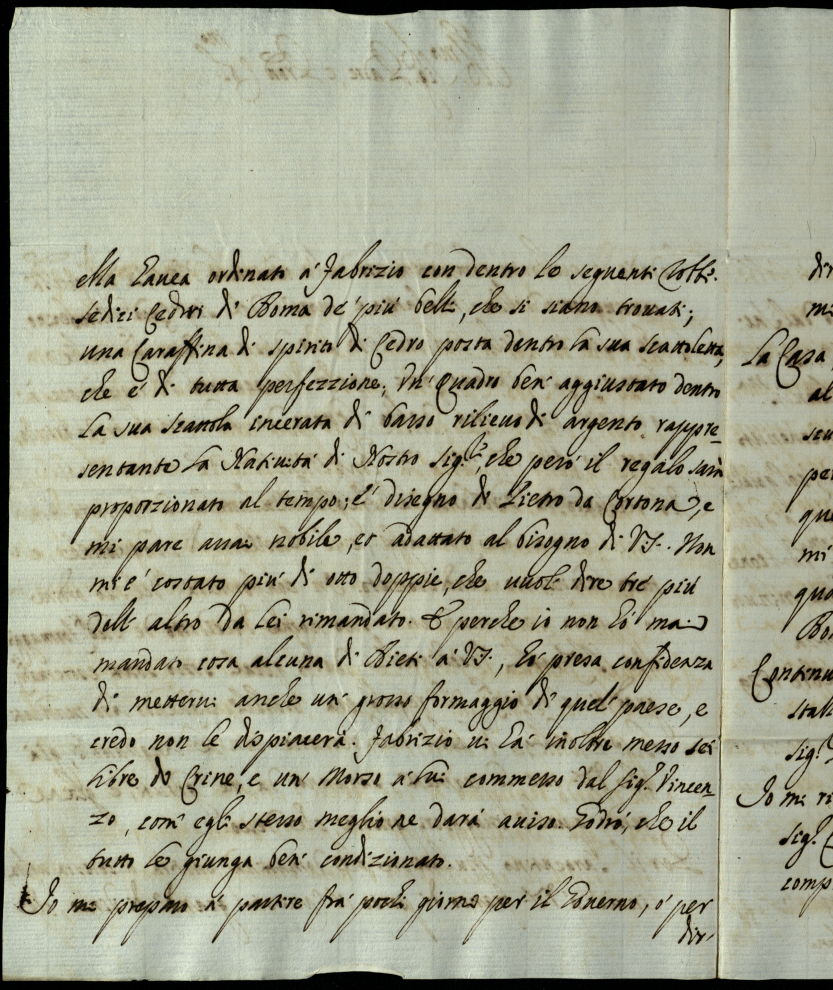 ella havea ordinato a' Fabrizio con dentro le seguenti robbe.
sedici Cedri di Roma de' più belli, che si siano trouati;
una Caraffina di spirito di Cedro posta dentro la sua scattoletta,
che e' di tutta perfezzione; un' Quadro ben' aggiustato dentro
la sua scattola incerata di basso rilieuo di argento rappre=
sentante la Natiuità di Nostro Sig.re, che però il regalo sarà
proporzionato al tempo; e' disegno di Pietro da Cortona, e
mi pare assai nobile, et adattato al bisogno di VS. Non
mi e' costato più di otto doppie, che uuol dire tre' più
dell' altro da lei rimandato. E perche io non hò mai
mandato cosa alcuna di Rieti a' VS., hò presa confidenza
di metterui anche un' grosso formaggio di quel paese, e
credo non le dispiacerà. Fabrizio ui hà inoltre messo sei
libre di Crine, e un' Morso a' lui commesso dal Sig.r Vincen
zo, com' egli stesso meglio ne darà auiso. Godrò, che il
tutto le giunga ben' condizionato.
Io mi preparo a' partire frà pochi giorni per il Gouerno, ò per
dir'
dir
mi
La Casa
al
seu
per
que
mi
qua
Rom
Contenu
stall
Sig.r
Io mi ri
Sig.r
comp